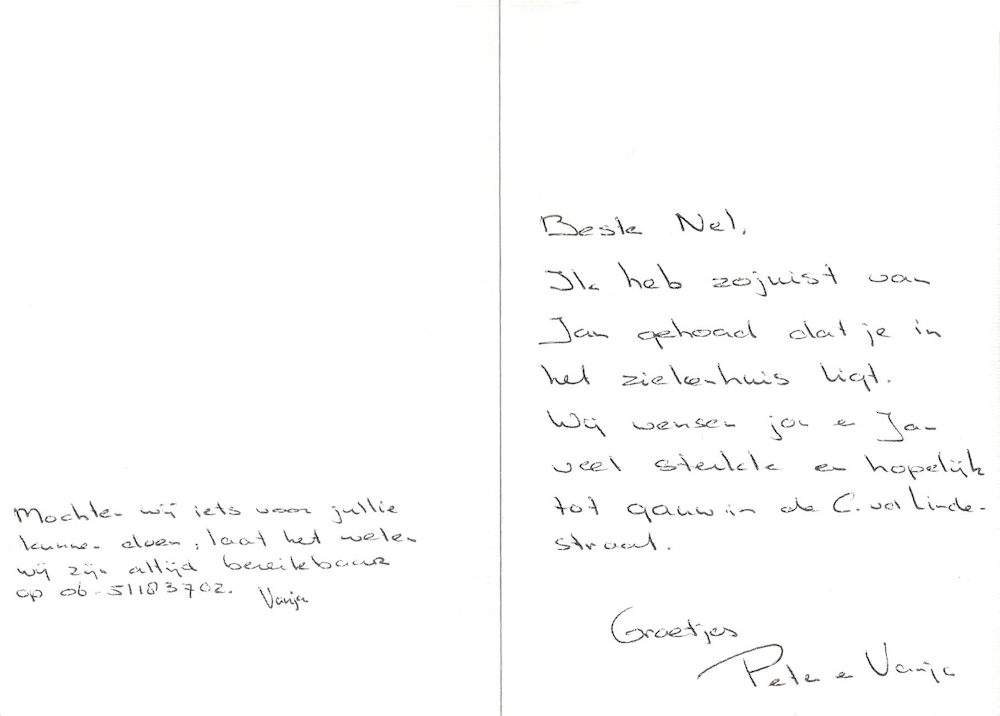 Mochten wij iets voor jullie
kunnen doen, laat het weten
wij zijn altijd bereikbaar
op 06-51183702. Vanja
Beste Nel,
Ik heb zojuist van
Jan gehoord dat je in
het ziekenhuis ligt.
Wij wensen jou en Jan
veel sterkte en hopelijk
tot gauw in de C. vd Linde-
straat.
Groetjes
Peter en Vanja